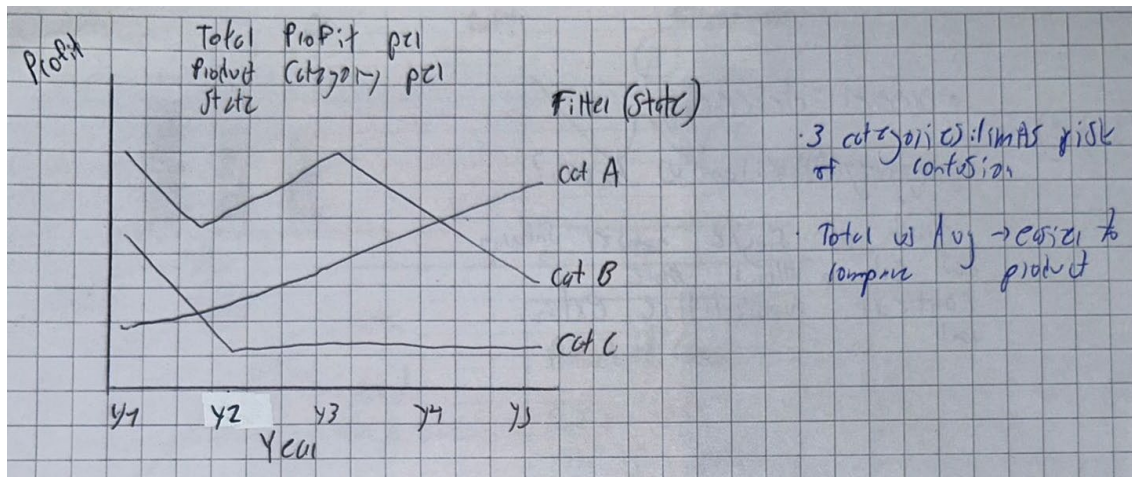 Profit
Total Profit per
Product Category per
State
Filter (State)
Cat A
Cat B
Cat C
Y1 Y2 Y3 Y4 Y5
Year
· 3 categories: limits risk
of confusion
· Total vs Avg → easier to
compare product